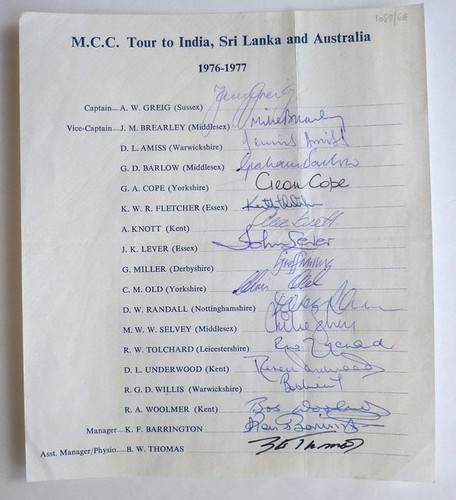 1088/GE
M.C.C. Tour to India, Sri Lanka and Australia
1976-1977
Captain— A. W. GREIG (Sussex) Tony Greig
Vice-Captain— J. M. BREARLEY (Middlesex) Mike Brearley
D. L. AMISS (Warwickshire) Dennis Amiss
G. D. BARLOW (Middlesex) Graham Barlow
G. A. COPE (Yorkshire) Geoff Cope
K. W. R. FLETCHER (Essex) Keith Fletcher
A. KNOTT (Kent) Alan Knott
J. K. LEVER (Essex) John Lever
G. MILLER (Derbyshire) Geoff Miller
C. M. OLD (Yorkshire) Chris Old
D. W. RANDALL (Nottinghamshire)
M. W. W. SELVEY (Middlesex) Mike Selvey
R. W. TOLCHARD (Leicestershire)
D. L. UNDERWOOD (Kent) Derek Underwood
R. G. D. WILLIS (Warwickshire) Bob
R. A. WOOLMER (Kent) Bob Woolmer
Manager— K. F. BARRINGTON Ken Barrington
Asst. Manager/Physio. B. W. THOMAS B W Thomas